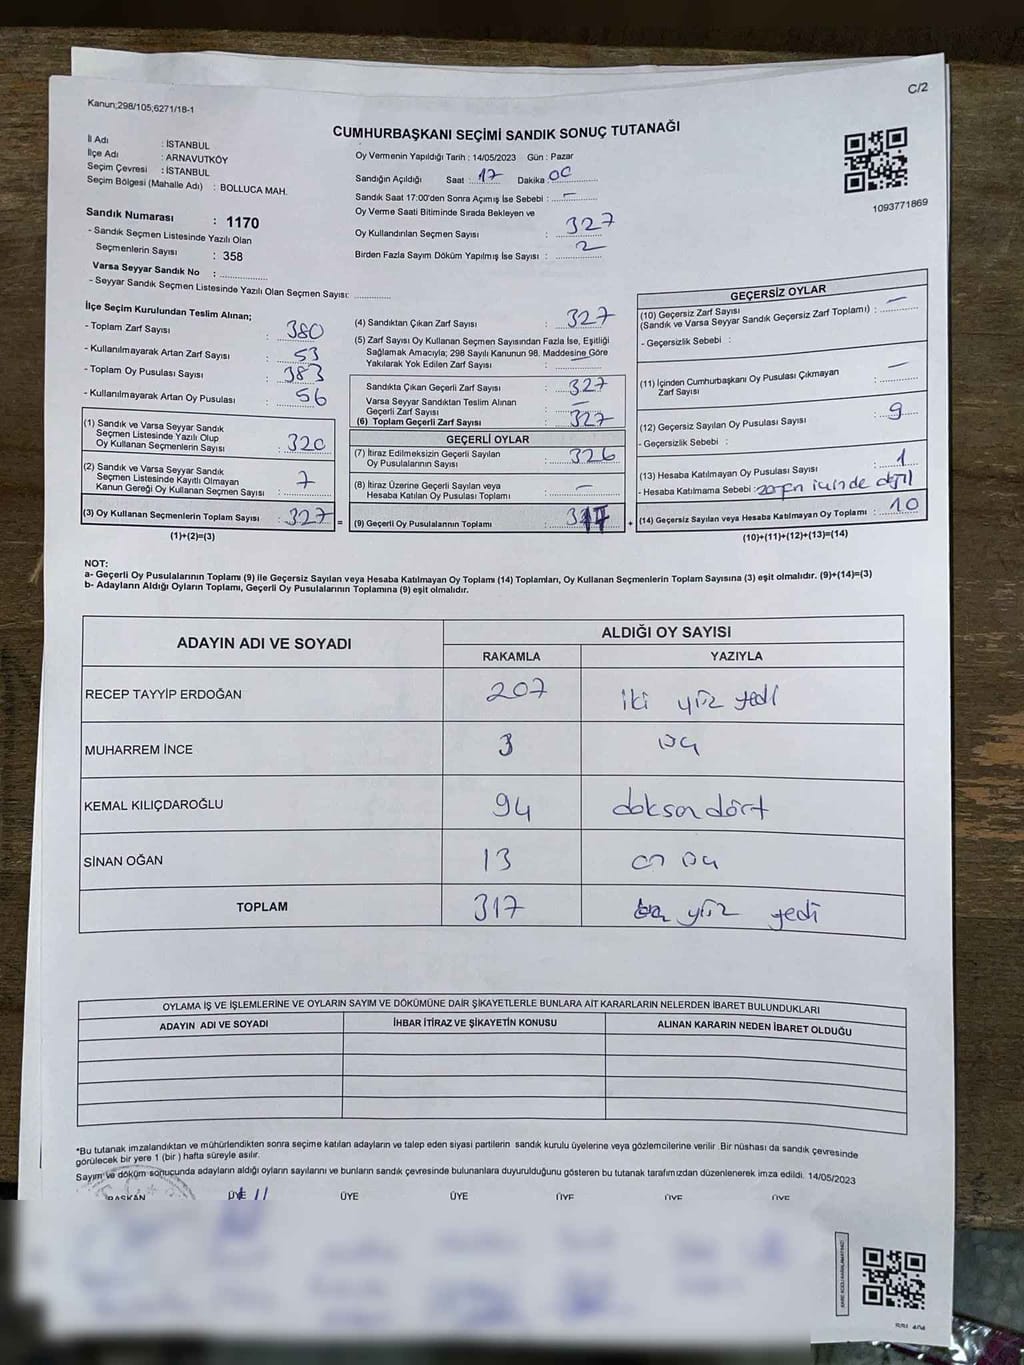 C/2
Kanun;298/105;6271/18-1
CUMHURBAŞKANI SEÇİMİ SANDIK SONUÇ TUTANAĞI
İl Adı : İSTANBUL
İlçe Adı : ARNAVUTKÖY
Seçim Çevresi : İSTANBUL
Seçim Bölgesi (Mahalle Adı) : BOLLUCA MAH.
Sandık Numarası : 1170
- Sandık Seçmen Listesinde Yazılı Olan
Seçmenlerin Sayısı : 358
Varsa Seyyar Sandık No :
- Seyyar Sandık Seçmen Listesinde Yazılı Olan Seçmen Sayısı:
Oy Vermenin Yapıldığı Tarih : 14/05/2023 Gün : Pazar
Sandığın Açıldığı Saat : 17 Dakika : 00
Sandık Saat 17:00'den Sonra Açımış İse Sebebi : -
Oy Verme Saati Bitiminde Sırada Bekleyen ve
Oy Kullandırılan Seçmen Sayısı : 327
Birden Fazla Sayım Döküm Yapılmış İse Sayısı : 2
1093771869
İlçe Seçim Kurulundan Teslim Alınan;
- Toplam Zarf Sayısı : 380
- Kullanılmayarak Artan Zarf Sayısı : 53
- Toplam Oy Pusulası Sayısı : 383
- Kullanılmayarak Artan Oy Pusulası : 56
(1) Sandık ve Varsa Seyyar Sandık
Seçmen Listesinde Yazılı Olup
Oy Kullanan Seçmenlerin Sayısı : 320
(2) Sandık ve Varsa Seyyar Sandık
Seçmen Listesinde Kayıtlı Olmayan
Kanun Gereği Oy Kullanan Seçmen Sayısı : 7
(3) Oy Kullanan Seçmenlerin Toplam Sayısı : 327 =
(1)+(2)=(3)
(4) Sandıktan Çıkan Zarf Sayısı : 327
(5) Zarf Sayısı Oy Kullanan Seçmen Sayısından Fazla İse, Eşitliği
Sağlamak Amacıyla; 298 Sayılı Kanunun 98. Maddesine Göre
Yakılarak Yok Edilen Zarf Sayısı : -
Sandıkta Çıkan Geçerli Zarf Sayısı : 327
Varsa Seyyar Sandıktan Teslim Alınan
Geçerli Zarf Sayısı : -
(6) Toplam Geçerli Zarf Sayısı : 327
GEÇERLİ OYLAR
(7) İtiraz Edilmeksizin Geçerli Sayılan
Oy Pusulalarının Sayısı : 326
(8) İtiraz Üzerine Geçerli Sayılan veya
Hesaba Katılan Oy Pusulası Toplamı : -
(9) Geçerli Oy Pusulalarının Toplamı : 317 +
GEÇERSİZ OYLAR
(10) Geçersiz Zarf Sayısı
(Sandık ve Varsa Seyyar Sandık Geçersiz Zarf Toplamı) : -
- Geçersizlik Sebebi :
(11) İçinden Cumhurbaşkanı Oy Pusulası Çıkmayan
Zarf Sayısı : -
(12) Geçersiz Sayılan Oy Pusulası Sayısı : 9
- Geçersizlik Sebebi :
(13) Hesaba Katılmayan Oy Pusulası Sayısı : 1
- Hesaba Katılmama Sebebi : zarfın içinde değil
(14) Geçersiz Sayılan veya Hesaba Katılmayan Oy Toplamı : 10
(10)+(11)+(12)+(13)=(14)
NOT:
a- Geçerli Oy Pusulalarının Toplamı (9) ile Geçersiz Sayılan veya Hesaba Katılmayan Oy Toplamı (14) Toplamları, Oy Kullanan Seçmenlerin Toplam Sayısına (3) eşit olmalıdır. (9)+(14)=(3)
b- Adayların Aldığı Oyların Toplamı, Geçerli Oy Pusulalarının Toplamına (9) eşit olmalıdır.
ADAYIN ADI VE SOYADI
ALDIĞI OY SAYISI
RAKAMLA YAZIYLA
RECEP TAYYİP ERDOĞAN 207 iki yüz yedi
MUHARREM İNCE 3 üç
KEMAL KILIÇDAROĞLU 94 doksan dört
SİNAN OĞAN 13 on üç
TOPLAM 317 yüz yedi
OYLAMA İŞ VE İŞLEMLERİNE VE OYLARIN SAYIM VE DÖKÜMÜNE DAİR ŞİKAYETLERLE BUNLARA AİT KARARLARIN NELERDEN İBARET BULUNDUKLARI
ADAYIN ADI VE SOYADI İHBAR İTİRAZ VE ŞİKAYETİN KONUSU ALINAN KARARIN NEDEN İBARET OLDUĞU
*Bu tutanak imzalandıktan ve mühürlendikten sonra seçime katılan adayların ve talep eden siyasi partilerin sandık kurulu üyelerine veya gözlemcilerine verilir .Bir nüshası da sandık çevresinde
görülecek bir yere 1 (bir ) hafta süreyle asılır.
Sayım ve döküm sonucunda adayların aldığı oyların sayılarını ve bunların sandık çevresinde bulunanlara duyurulduğunu gösteren bu tutanak tarafımızdan düzenlenerek imza edildi. 14/05/2023
BAŞKAN ÜYE ÜYE ÜYE ÜYE ÜYE ÜYE